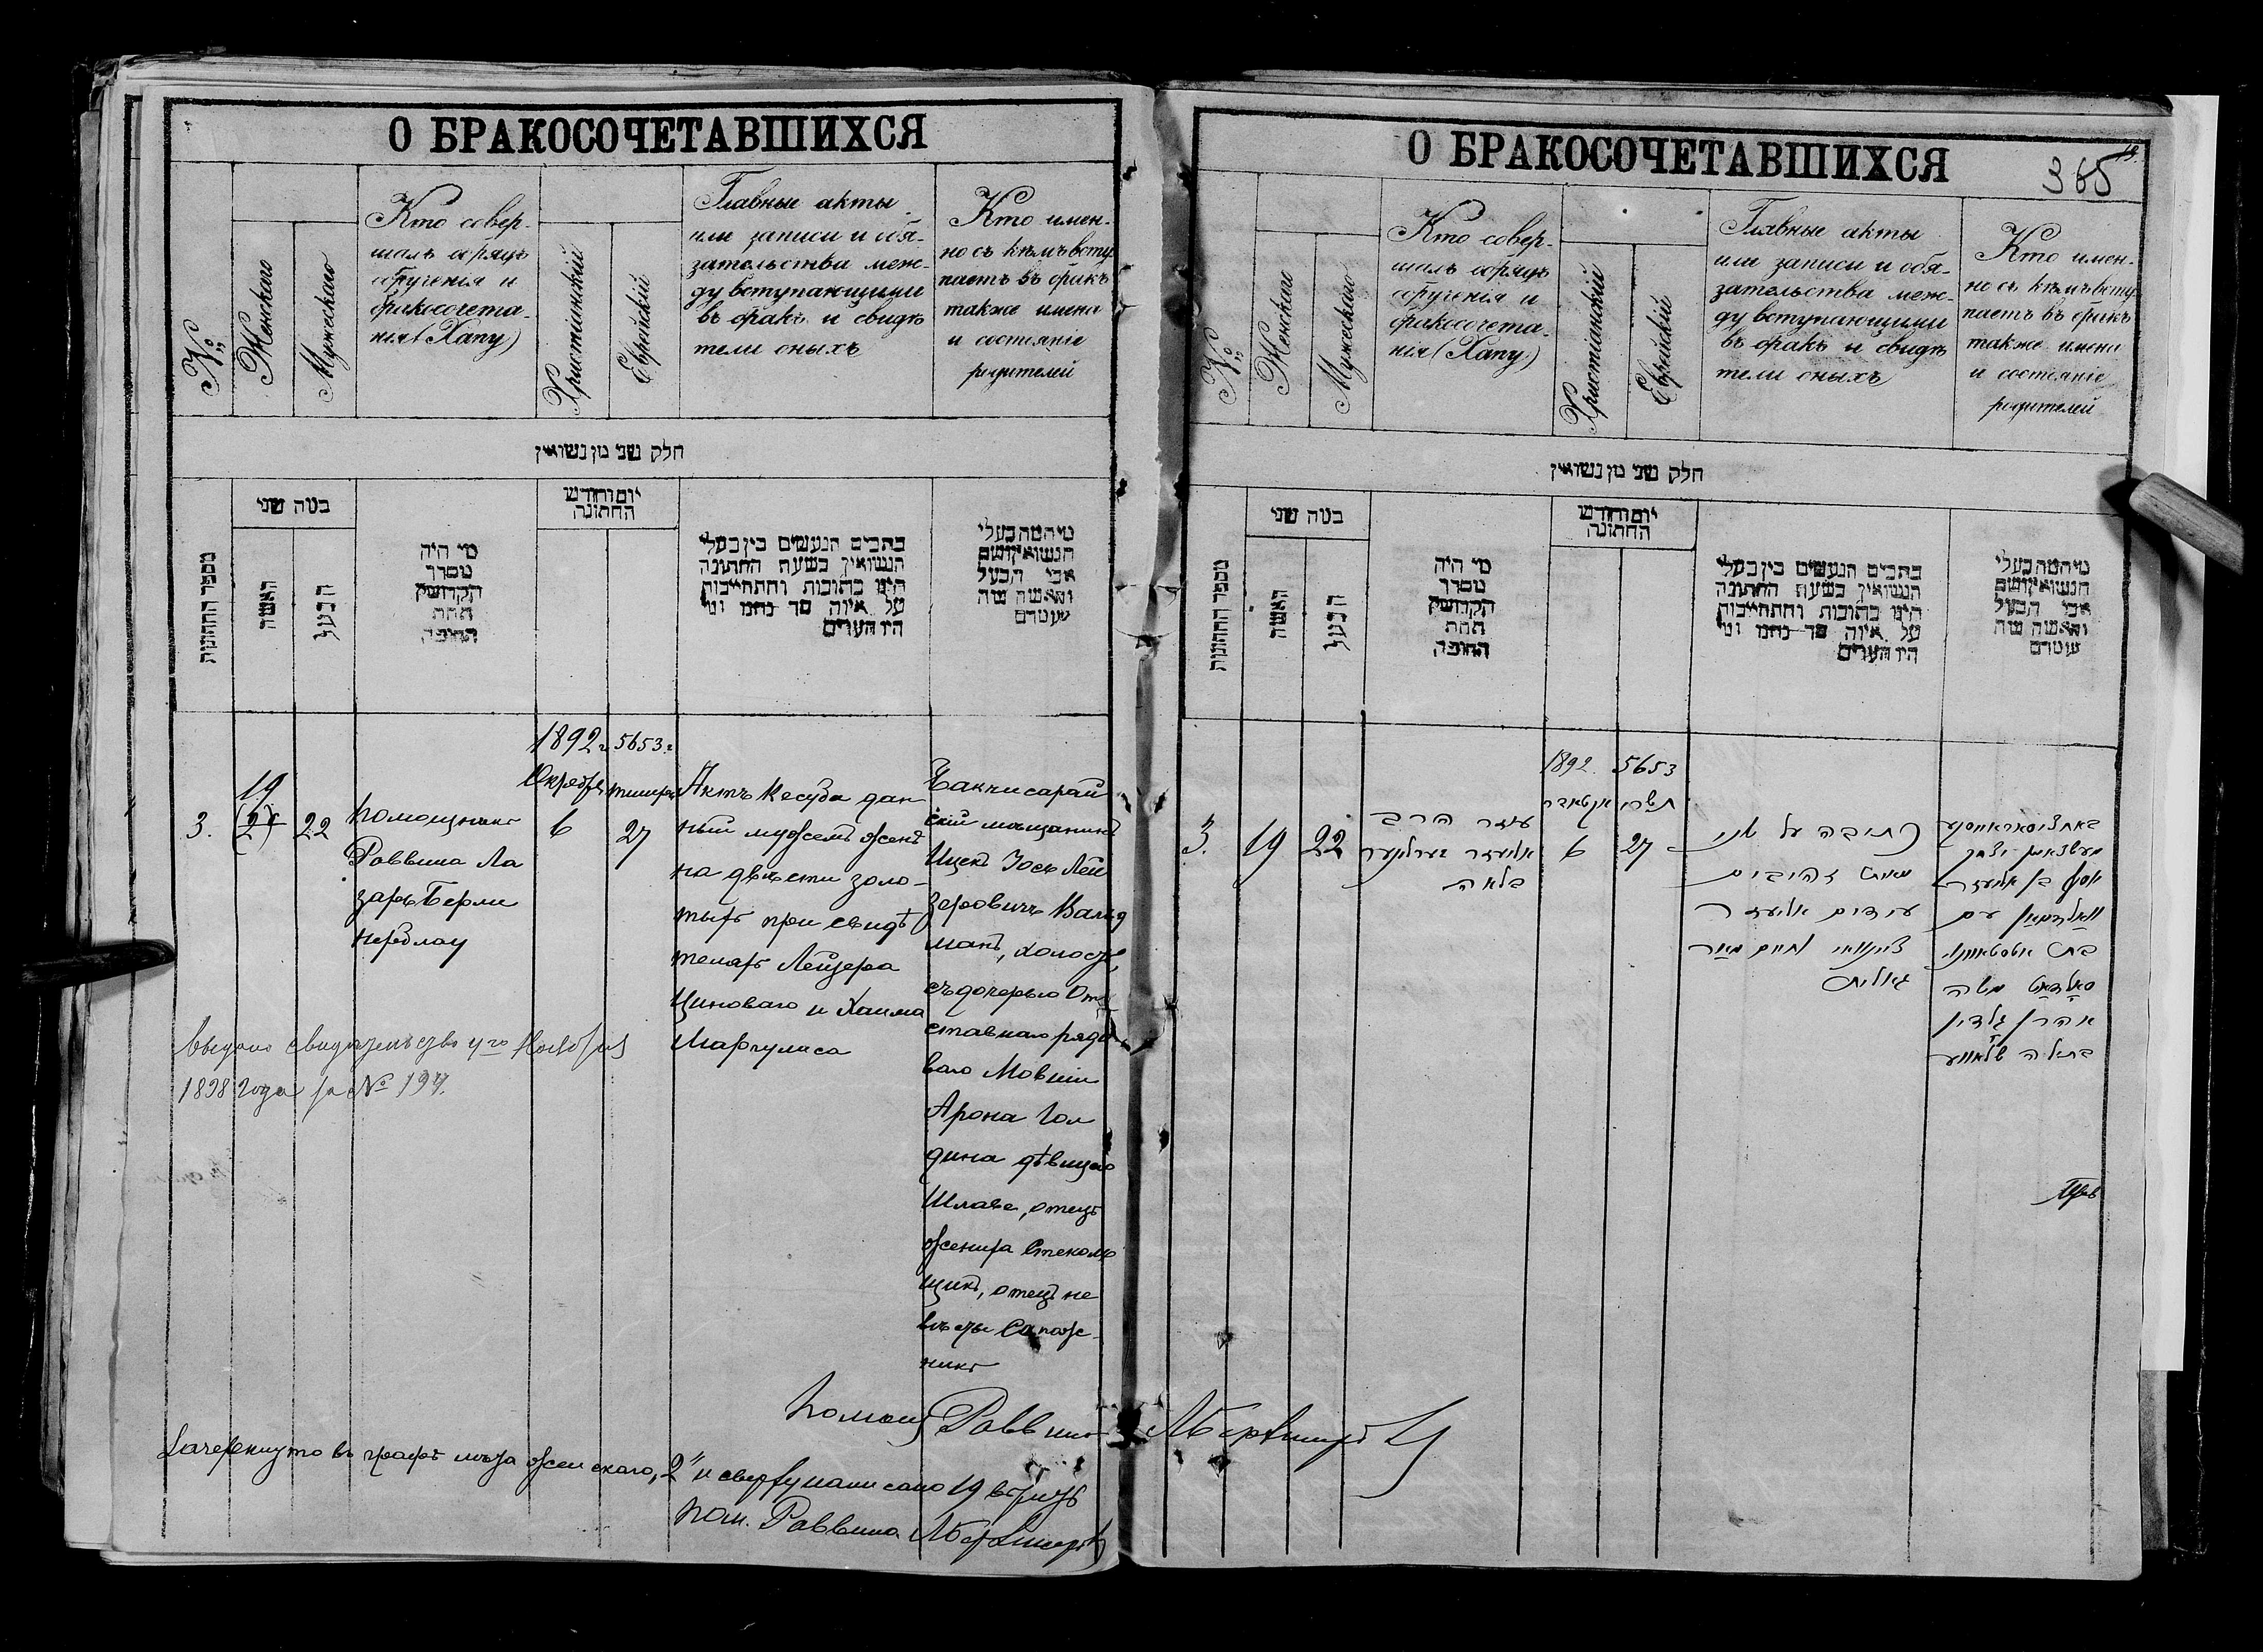 О БРАКОСОЧЕТАВШИХСЯ
№
Женскаго
Мужескаго
Кто совер-
шалъ обрядъ
обрученія и
бракосочета-
нія (Хапу)
Христіанскій
Еврейскій
Главные акты
или записи и обя-
зательства меж-
ду вступающими
въ бракъ и свидѣ
тели оныхъ
Кто имен-
но съ кѣмъ всту
паетъ въ бракъ
также имена
и состояніе
родителей
חלק שני מן נשואין
מספר החתונות
במה שני
האשה
הבעל
מי היה
מסדר
הקדושין
תחת
החופה
יום וחודש
החתונה
כתבים הנעשים בין בעלי
הנשואין בשעת החתונה
היינו כתובות והתחייבות
על איזה סך נתנו ומי
היו העדים
1892 г. 5653 г.
3.
19
22
Помощникъ
Раввина Ла
заръ Берли
нерблау
Октября
6
тишри
27
Актъ Кесуба дан
ный мужемъ женѣ
на двѣсти золо-
тыхъ при свидѣ
теляхъ Лейзера
Циноваго и Хаима
Маргулиса
Бахчисарай
скій мѣщанинъ
Ицекъ Іось Лей
зеровичъ Валид
манъ, холостъ,
съ дочерью От
ставнаго рядо
ваго Мовши
Арона Гол
дина дѣвицею
Шлава, отецъ
жениха Стеколь
щикъ, отецъ не
вѣсты Сапож-
никъ
Выдано свидѣтельство 4го Ноября
1898 года за № 197.
Помощ. Раввина
Зачеркнуто въ графѣ лѣта женскаго, 2" и сверху написано 19 вѣрить
Пом. Раввина
О БРАКОСОЧЕТАВШИХСЯ
365
№
Женскаго
Мужескаго
Кто совер-
шалъ обрядъ
обрученія и
бракосочета-
нія (Хапу)
Христіанскій
Еврейскій
Главные акты
или записи и обя-
зательства меж-
ду вступающими
въ бракъ и свидѣ
тели оныхъ
Кто имен-
но съ кѣмъ всту
паетъ въ бракъ
также имена
и состояніе
родителей
חלק שני מן נשואין
מספר החתונות
במה שני
האשה
הבעל
מי היה
מסדר
הקדושין
תחת
החופה
יום וחודש
החתונה
כתבים הנעשים בין בעלי
הנשואין בשעת החתונה
היינו כתובות והתחייבות
על איזה סך נתנו ומי
היו העדים
1892. 5653
3.
19
22
עוזר הרב
אליעזר בערלינער
בלאה
6
תשרי
27
כתובה על סך
מאתים זהובים
עידים אליעזר
חיים מאיר
יוסף בן אליעזר
וואלדמאן עם
בת
סאלדאט משה
אהרן גלדין
בתולה שלאווע